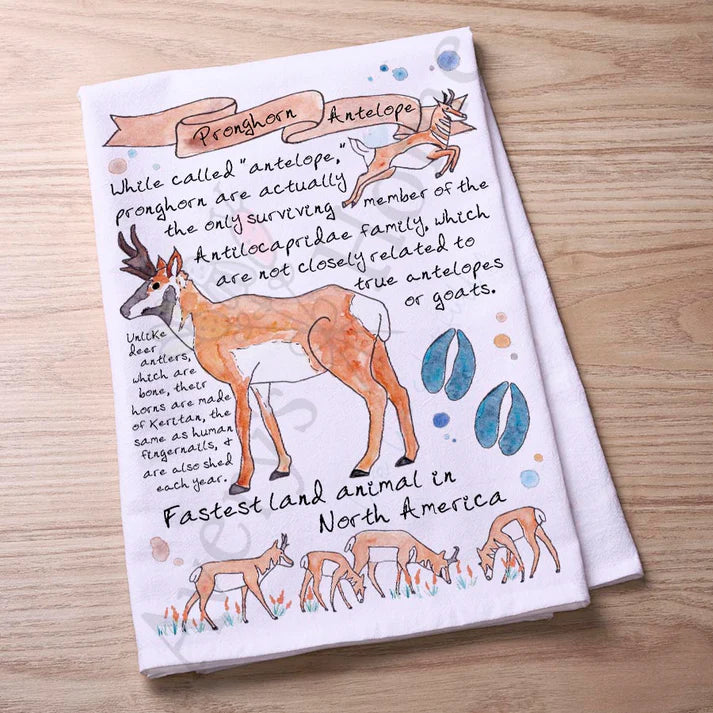 Pronghorn Antelope
While called "antelope,"
pronghorn are actually
the only surviving member of the
Antilocapridae family, which
are not closely related to
true antelopes
or goats.
Unlike
deer
antlers,
which are
bone, their
horns are made
of Keritan, the
same as human
fingernails, &
are also shed
each year.
Fastest land animal in
North America